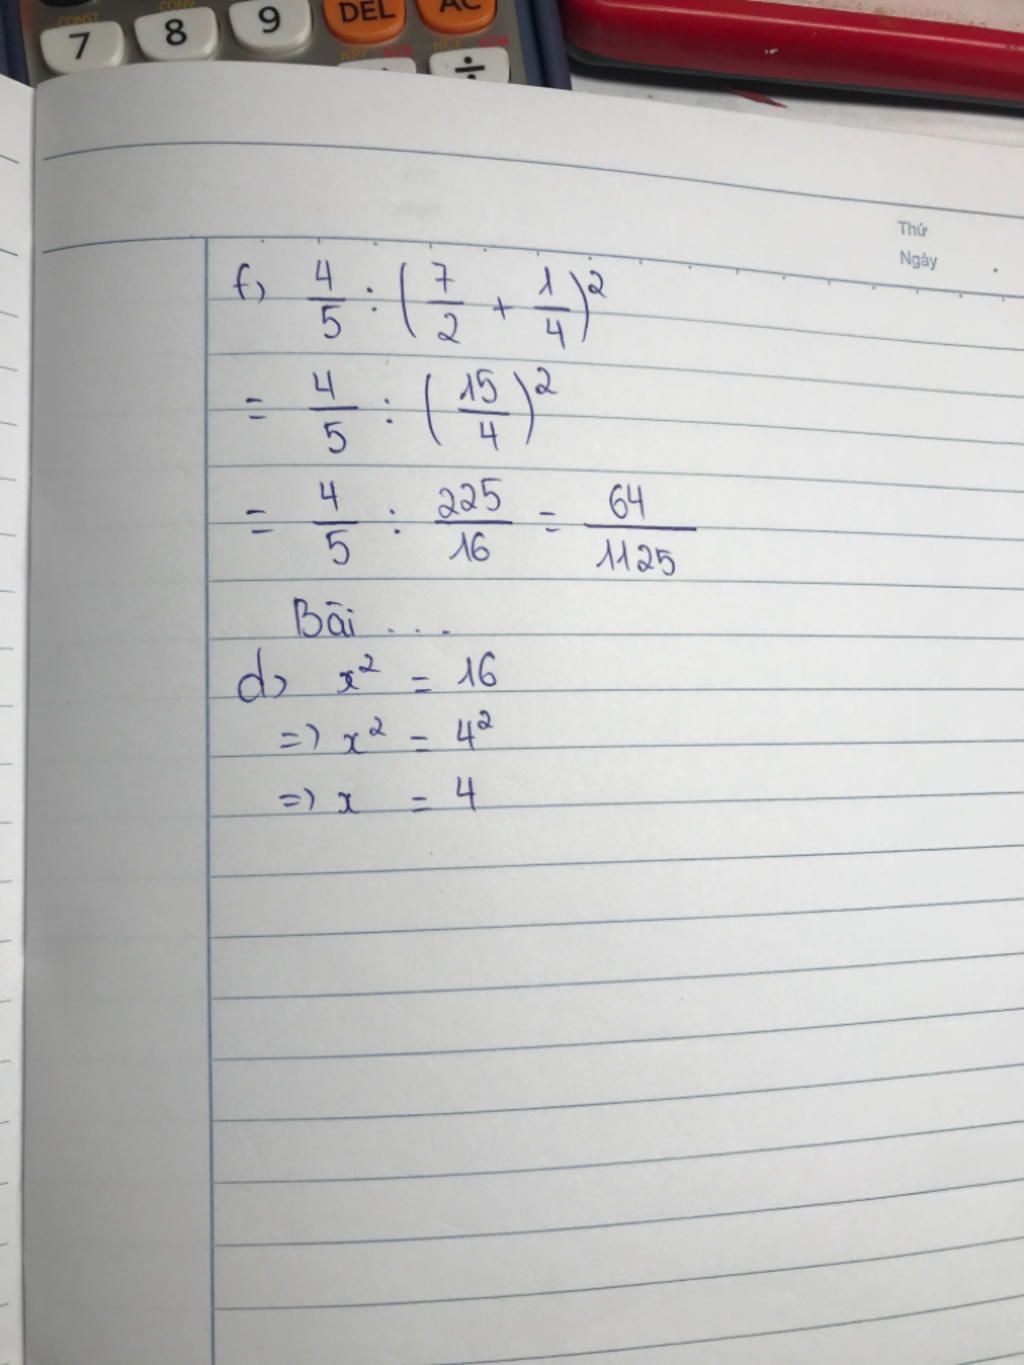 CONST CONV
7 8 9 DEL AC
÷
Thứ
Ngày
f) 4/5 : (7/2 + 1/4)²
= 4/5 : (15/4)²
= 4/5 : 225/16 = 64/1125
Bài ...
d) x² = 16
=> x² = 4²
=> x = 4